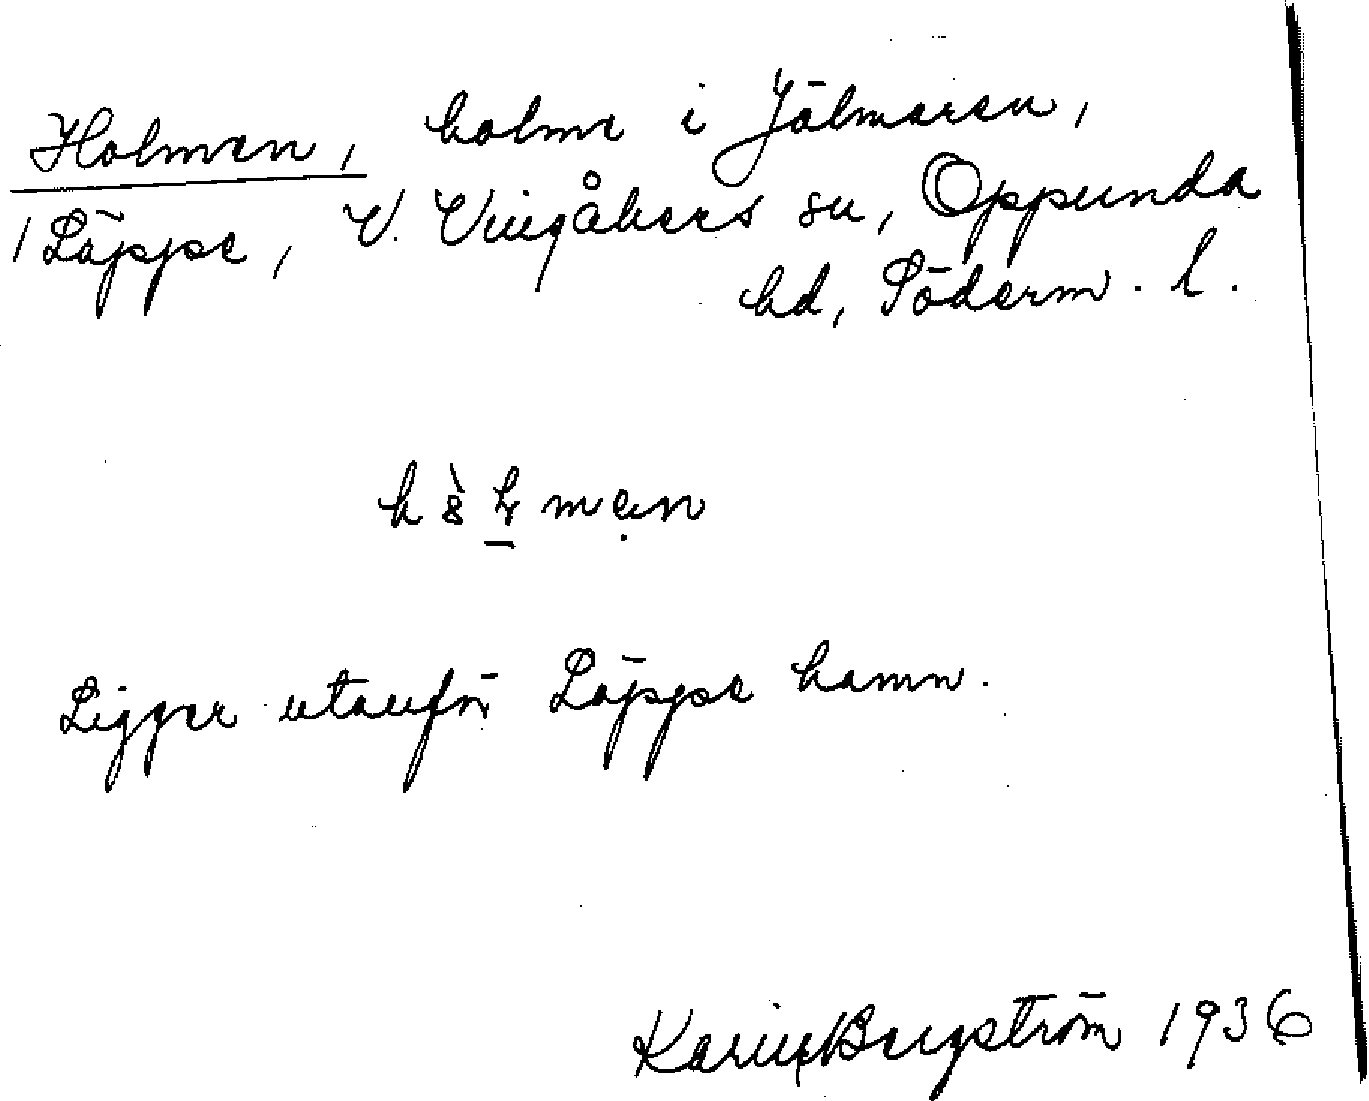 Holmen, holme i Jälmaren,
/ Läppe, V. Vingåkers sn, Oppunda
hd, Söderm. l.
Ligger utanför Läppe hamn.
Karin Bergström 1936